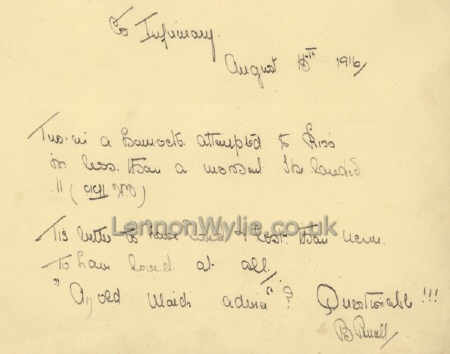 Co Infirmary.
August 15th 1916/
Two in a Hammock attempted to Kiss
in less than a moment the landed
" (
LennonWylie.co.uk
Tis better to have loved & lost than never
To have loved at all.
"An old Maids advice"? Questionable!!!
B Russell